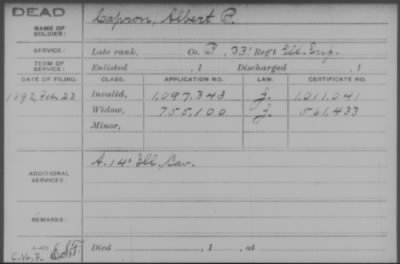 DEAD
NAME OF SOLDIER: Capron, Albert P.
SERVICE: Late rank, Co. B, 33' Reg't Ill. Inf.
TERM OF SERVICE: Enlisted , 1 Discharged , 1
DATE OF FILING. CLASS. APPLICATION NO. LAW. CERTIFICATE NO.
1892, Feb. 23 Invalid, 1,097,343 J. 1,011,041
Widow, 755,100 J. 561,433
Minor,
ADDITIONAL SERVICES: A. 14' Ill. Cav.
REMARKS:
C.W.F. Died , 1 , at